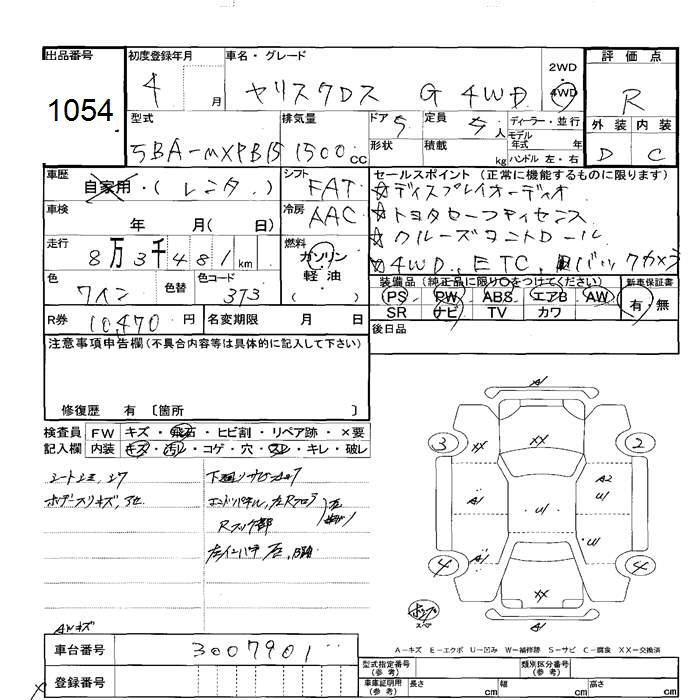 出品番号
1054
初度登録年月
4 月
車名・グレード
ヤリスクロス G 4WD
2WD
・
4WD
評価点
R
外装 内装
D C
型式
5BA-MXPB15
排気量
1500 cc
ドア 5
定員 5 人
ディーラー・並行
モデル
年式 年
形状
積載 kg
ハンドル 左・右
車歴
自家用・(レンタ.)
シフト
FAT
車検
年 月(日)
冷房
AAC
走行
8万3千481 km
燃料
ガソリン
軽・油
( )
色
ワイン
色替
色コード
373
R券 10,470 円
名変期限 月 日
セールスポイント(正常に機能するものに限ります)
☆ディスプレイオーディオ
☆トヨタセーフティセンス
☆クルーズコントロール
☆4WD, ETC, バックカメラ
装備品(純正品に限り○をつけてください)
PS PW ABS エアB AW
SR ナビ TV カワ
新車保証書
有・無
後日品
注意事項申告欄(不具合内容等は具体的に記入して下さい)
修復歴 有 〔箇所 〕
検査員 FW キズ・飛石・ヒビ割・リペア跡・×要
記入欄 内装 キズ・汚レ・コゲ・穴・スレ・キレ・破レ
下廻りサビ
ボデースリキズ,
エンドパネル,左Rフロア
Rフック部
AWキズ
車台番号 3007901
登録番号
A1
3
XX
XX
2
A1
U1
A2
U1
A1
U1
4
XX
4
A1
A−キズ E−エクボ U−凹み W−補修跡 S−サビ C−腐食 XX−交換済
型式指定番号
(参考)
類別区分番号
(参考)
車庫証明用
(参考)
長さ cm 幅 cm 高さ cm